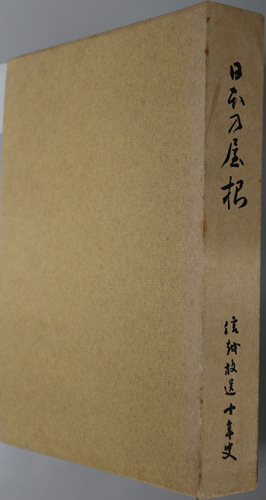 日本乃屋根
信越放送十年史